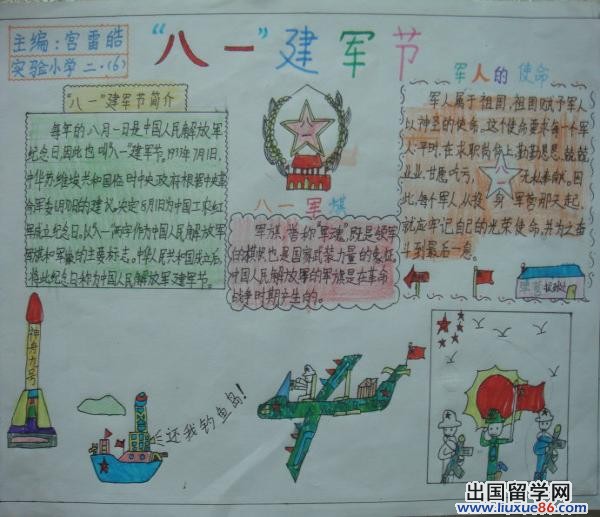 主编:宫雷皓
实验小学二·(6)
“八一”建军节
“八一”建军节简介
每年的八月一日是中国人民解放军
纪念日,因此也叫“八一”建军节。1933年7月1日,
中华苏维埃共和国临时中央政府根据中央革
命军委6月30日的建议,决定8月1日为中国工农红
军成立纪念日。从“八一”两字作为中国人民解放军
军旗和军徽的主要标志。中华人民共和国成立后,
将此纪念日称为中国人民解放军建军节。
八一
八一军旗
军旗,誉称“军魂”,既是领军
的模式,也是国家武装力量的象征
中国人民解放军的军旗是在革命
战争时期产生的。
军人的使命
军人属于祖国,祖国赋予军人
以神圣的使命。这个使命要求每个军
人:平时,在求职岗位上勤勤恳恳,兢兢
业业,甘愿吃亏,无私奉献。因
此,每个军人从投身军营那天起,
就应牢记自己的光荣使命,并为之奋
斗到最后一息。
神舟九号
还我钓鱼岛!
出国留学网
www.liuxue86.com